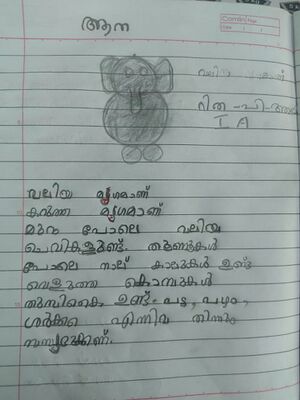 ആന
വലിയ
റിത
I A
വലിയ മൃഗമാണ്
കറുത്ത മൃഗമാണ്
മുറം പോലെ വലിയ
ചെവികളുണ്ട്. തൂണുകൾ
പോലെ നാല് കാലുകൾ ഉണ്ട്
വെളുത്ത കൊമ്പുകൾ
തുമ്പികൈ ഉണ്ട്. പട്ട, പഴം,
ശർക്കര എന്നിവ തിന്നും